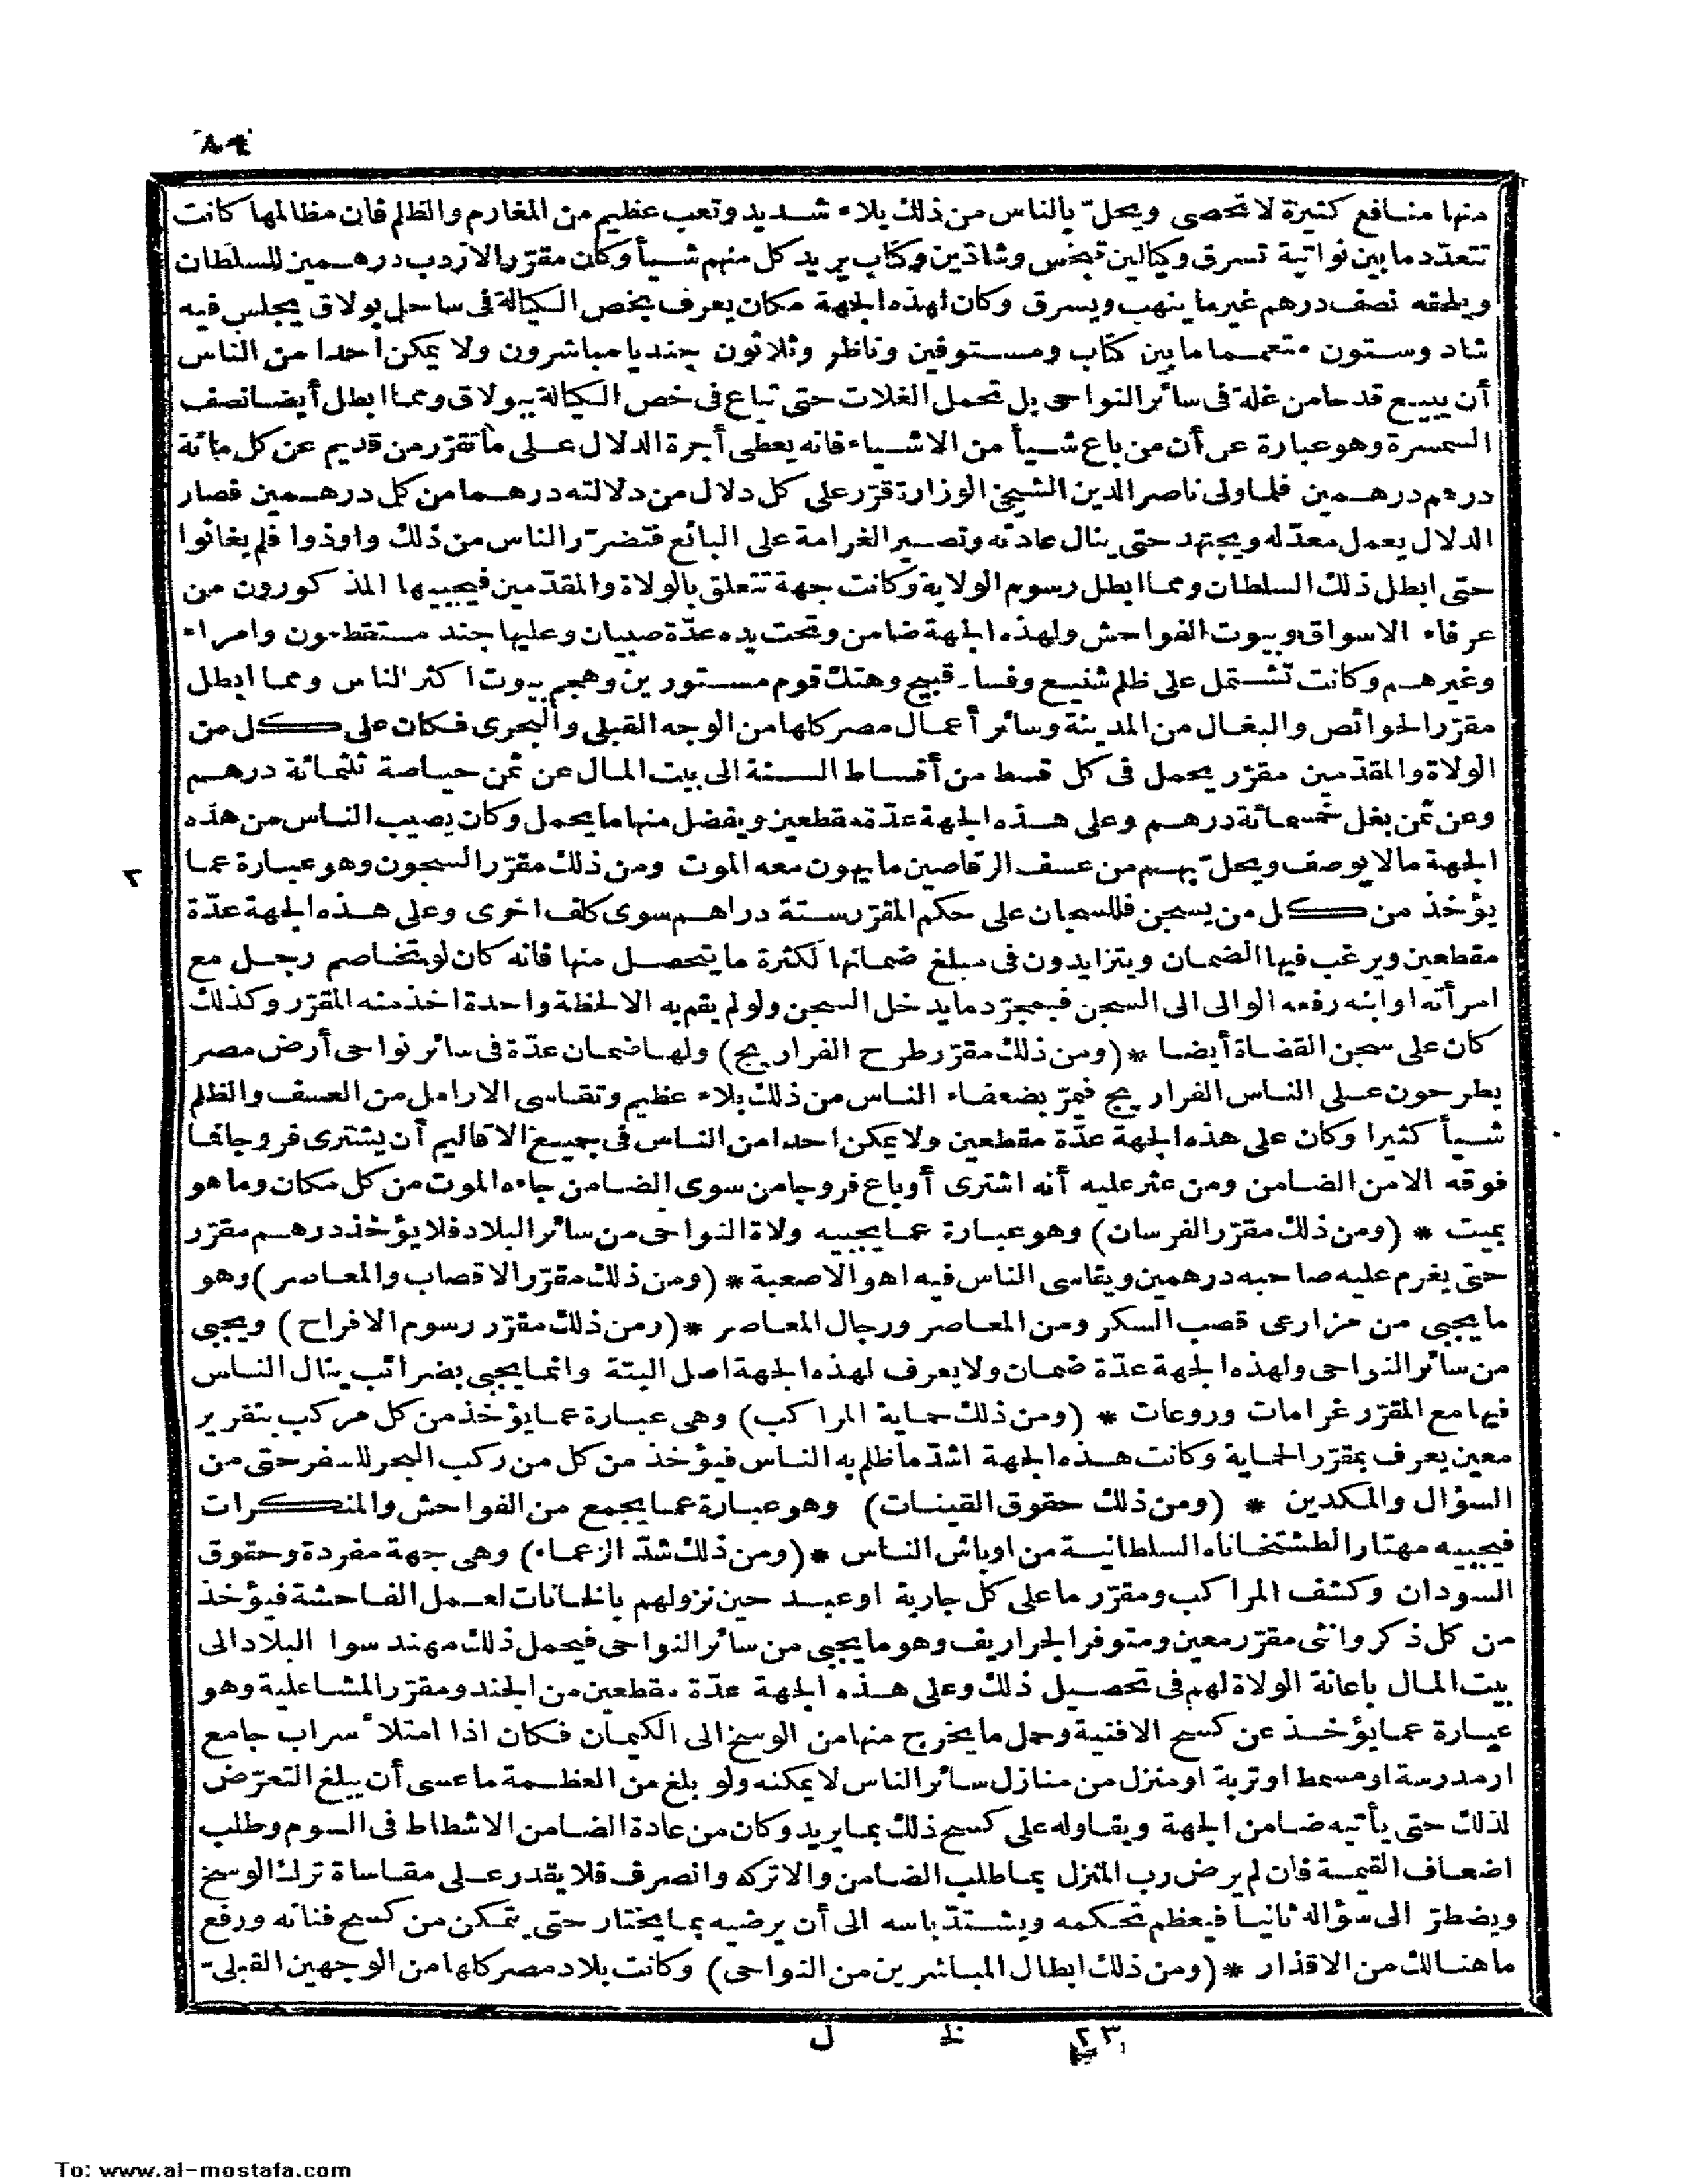 ٨٩
منها منافع كثيرة لا تحصى ويحلّ بالناس من ذلك بلاء شديد وتعب عظيم من المغارم والظلم فان مظالمها كانت
تتعدّد ما بين نواتية تسرق وكيالين تبخس وشادّين وكتاب يريد كل منهم شيأ وكان مقرّر الاردب درهمين للسلطان
ويلحقه نصف درهم غير ما ينهب ويسرق وكان لهذه الجهة مكان يعرف بخص الكيالة فى ساحل بولاق يجلس فيه
شاد وستون متعمما ما بين كتاب ومستوفين وناظر وثلاثون جنديا مباشرون ولا يمكن احدا من الناس
أن يبيع قدحا من غلة فى سائر النواحى بل تحمل الغلات حتى تباع فى خص الكيالة ببولاق ومما ابطل أيضا نصف
السمسرة وهو عبارة عن أن من باع شيأ من الاشياء فانه يعطى أجرة الدلال على ما تقرّر من قديم عن كل مائة
درهم درهمين فلما ولى ناصر الدين الشيخى الوزارة قرّر على كل دلال من دلالته درهما من كل درهمين فصار
الدلال يعمل معدّله ويجتهد حتى ينال عادته وتصير الغرامة على البائع فتضرّر الناس من ذلك واوذوا فلم يغاثوا
حتى ابطل ذلك السلطان ومما ابطل رسوم الولاية وكانت جهة تتعلق بالولاة والمقدّمين فيجبيها المذكورون من
عرفاء الاسواق وبيوت الفواحش ولهذه الجهة ضامن وتحت يده عدّة صبيان وعليها جند مستقطعون وامراء
وغيرهم وكانت تشتمل على ظلم شنيع وفساد قبيح وهتك قوم مستورين وهجم بيوت اكثر الناس ومما ابطل
مقرّر الحوائص والبغال من المدينة وسائر أعمال مصر كلها من الوجه القبلى والبحرى فكان على كل من
الولاة والمقدّمين مقرّر يحمل فى كل قسط من أقساط السنة الى بيت المال عن ثمن حياصة ثلثمائة درهم
وعن ثمن بغل خمسمائة درهم وعلى هذه الجهة عدّة مقطعين ويفضل منها ما يحمل وكان يصيب الناس من هذه
الجهة مالا يوصف ويحلّ بهم من عسف الرقاصين ما يهون معه الموت ومن ذلك مقرّر السجون وهو عبارة عما
٢
يؤخذ من كل من يسجن فللسجان على حكم المقرّر ستة دراهم سوى كلف اخرى وعلى هذه الجهة عدّة
مقطعين ويرغب فيها الضمان ويتزايدون فى مبلغ ضمانها لكثرة ما يتحصل منها فانه كان لو تخاصم رجل مع
امرأته او ابنه رفعه الوالى الى السجن فبمجرّد ما يدخل السجن ولو لم يقم به الا لحظة واحدة اخذ منه المقرّر وكذلك
كان على سجن القضاة أيضا * (ومن ذلك مقرّر طرح الفراريج) ولها ضمان عدّة فى سائر نواحى أرض مصر
يطرحون على الناس الفراريج فيمرّ بضعفاء الناس من ذلك بلاء عظيم وتقاسى الارامل من العسف والظلم
شيأ كثيرا وكان على هذه الجهة عدّة مقطعين ولا يمكن احدا من الناس فى جميع الاقاليم أن يشترى فروجا فما
فوقه الا من الضامن ومن عثر عليه أنه اشترى أو باع فروجا من سوى الضامن جاءه الموت من كل مكان وما هو
بميت * (ومن ذلك مقرّر الفرسان) وهو عبارة عما يجبيه ولاة النواحى من سائر البلاد فلا يؤخذ درهم مقرّر
حتى يغرم عليه صاحبه درهمين ويقاسى الناس فيه اهوالا صعبة * (ومن ذلك مقرّر الاقصاب والمعاصر) وهو
ما يجبى من مزارعى قصب السكر ومن المعاصر ورجال المعاصر * (ومن ذلك مقرّر رسوم الافراح) ويجبى
من سائر النواحى ولهذه الجهة عدّة ضمان ولا يعرف لهذه الجهة اصل البتة وانما يجبى بضرائب ينال الناس
فيها مع المقرّر غرامات وروعات * (ومن ذلك حماية المراكب) وهى عبارة عما يؤخذ من كل مركب بتقرير
معين يعرف بمقرّر الحماية وكانت هذه الجهة اشدّ ما ظلم به الناس فيؤخذ من كل من ركب البحر للسفر حتى من
السؤال والمكدين * (ومن ذلك حقوق القينات) وهو عبارة عما يجمع من الفواحش والمنكرات
فيجبيه مهتار الطشتخاناه السلطانية من اوباش الناس * (ومن ذلك شدّ الزعماء) وهى جهة مفردة وحقوق
السودان وكشف المراكب ومقرّر ما على كل جارية او عبد حين نزولهم بالخانات لعمل الفاحشة فيؤخذ
من كل ذكر وانثى مقرّر معين ومتوفر الجراريف وهو ما يجبى من سائر النواحى فيحمل ذلك مهندسوا البلاد الى
بيت المال باعانة الولاة لهم فى تحصيل ذلك وعلى هذه الجهة عدّة مقطعين من الجند ومقرّر المشاعلية وهو
عبارة عما يؤخذ عن كسح الافنية وحمل ما يخرج منها من الوسخ الى الكيمان فكان اذا امتلأ سراب جامع
او مدرسة او مسمط او تربة او منزل من منازل سائر الناس لا يمكنه ولو بلغ من العظمة ما عسى أن يبلغ التعرّض
لذلك حتى يأتيه ضامن الجهة ويقاوله على كسح ذلك بما يريد وكان من عادة الضامن الاشطاط فى السوم وطلب
اضعاف القيمة فان لم يرض رب المنزل بما طلب الضامن والا تركه وانصرف فلا يقدر على مقاساة ترك الوسخ
ويضطرّ الى سؤاله ثانيا فيعظم تحكمه ويشتدّ باسه الى أن يرضيه بما يختار حتى يتمكن من كسح فنائه ورفع
ما هنالك من الاقذار * (ومن ذلك ابطال المباشرين من النواحى) وكانت بلاد مصر كلها من الوجهين القبلى-
٢٣ خط ل
To: www.al-mostafa.com